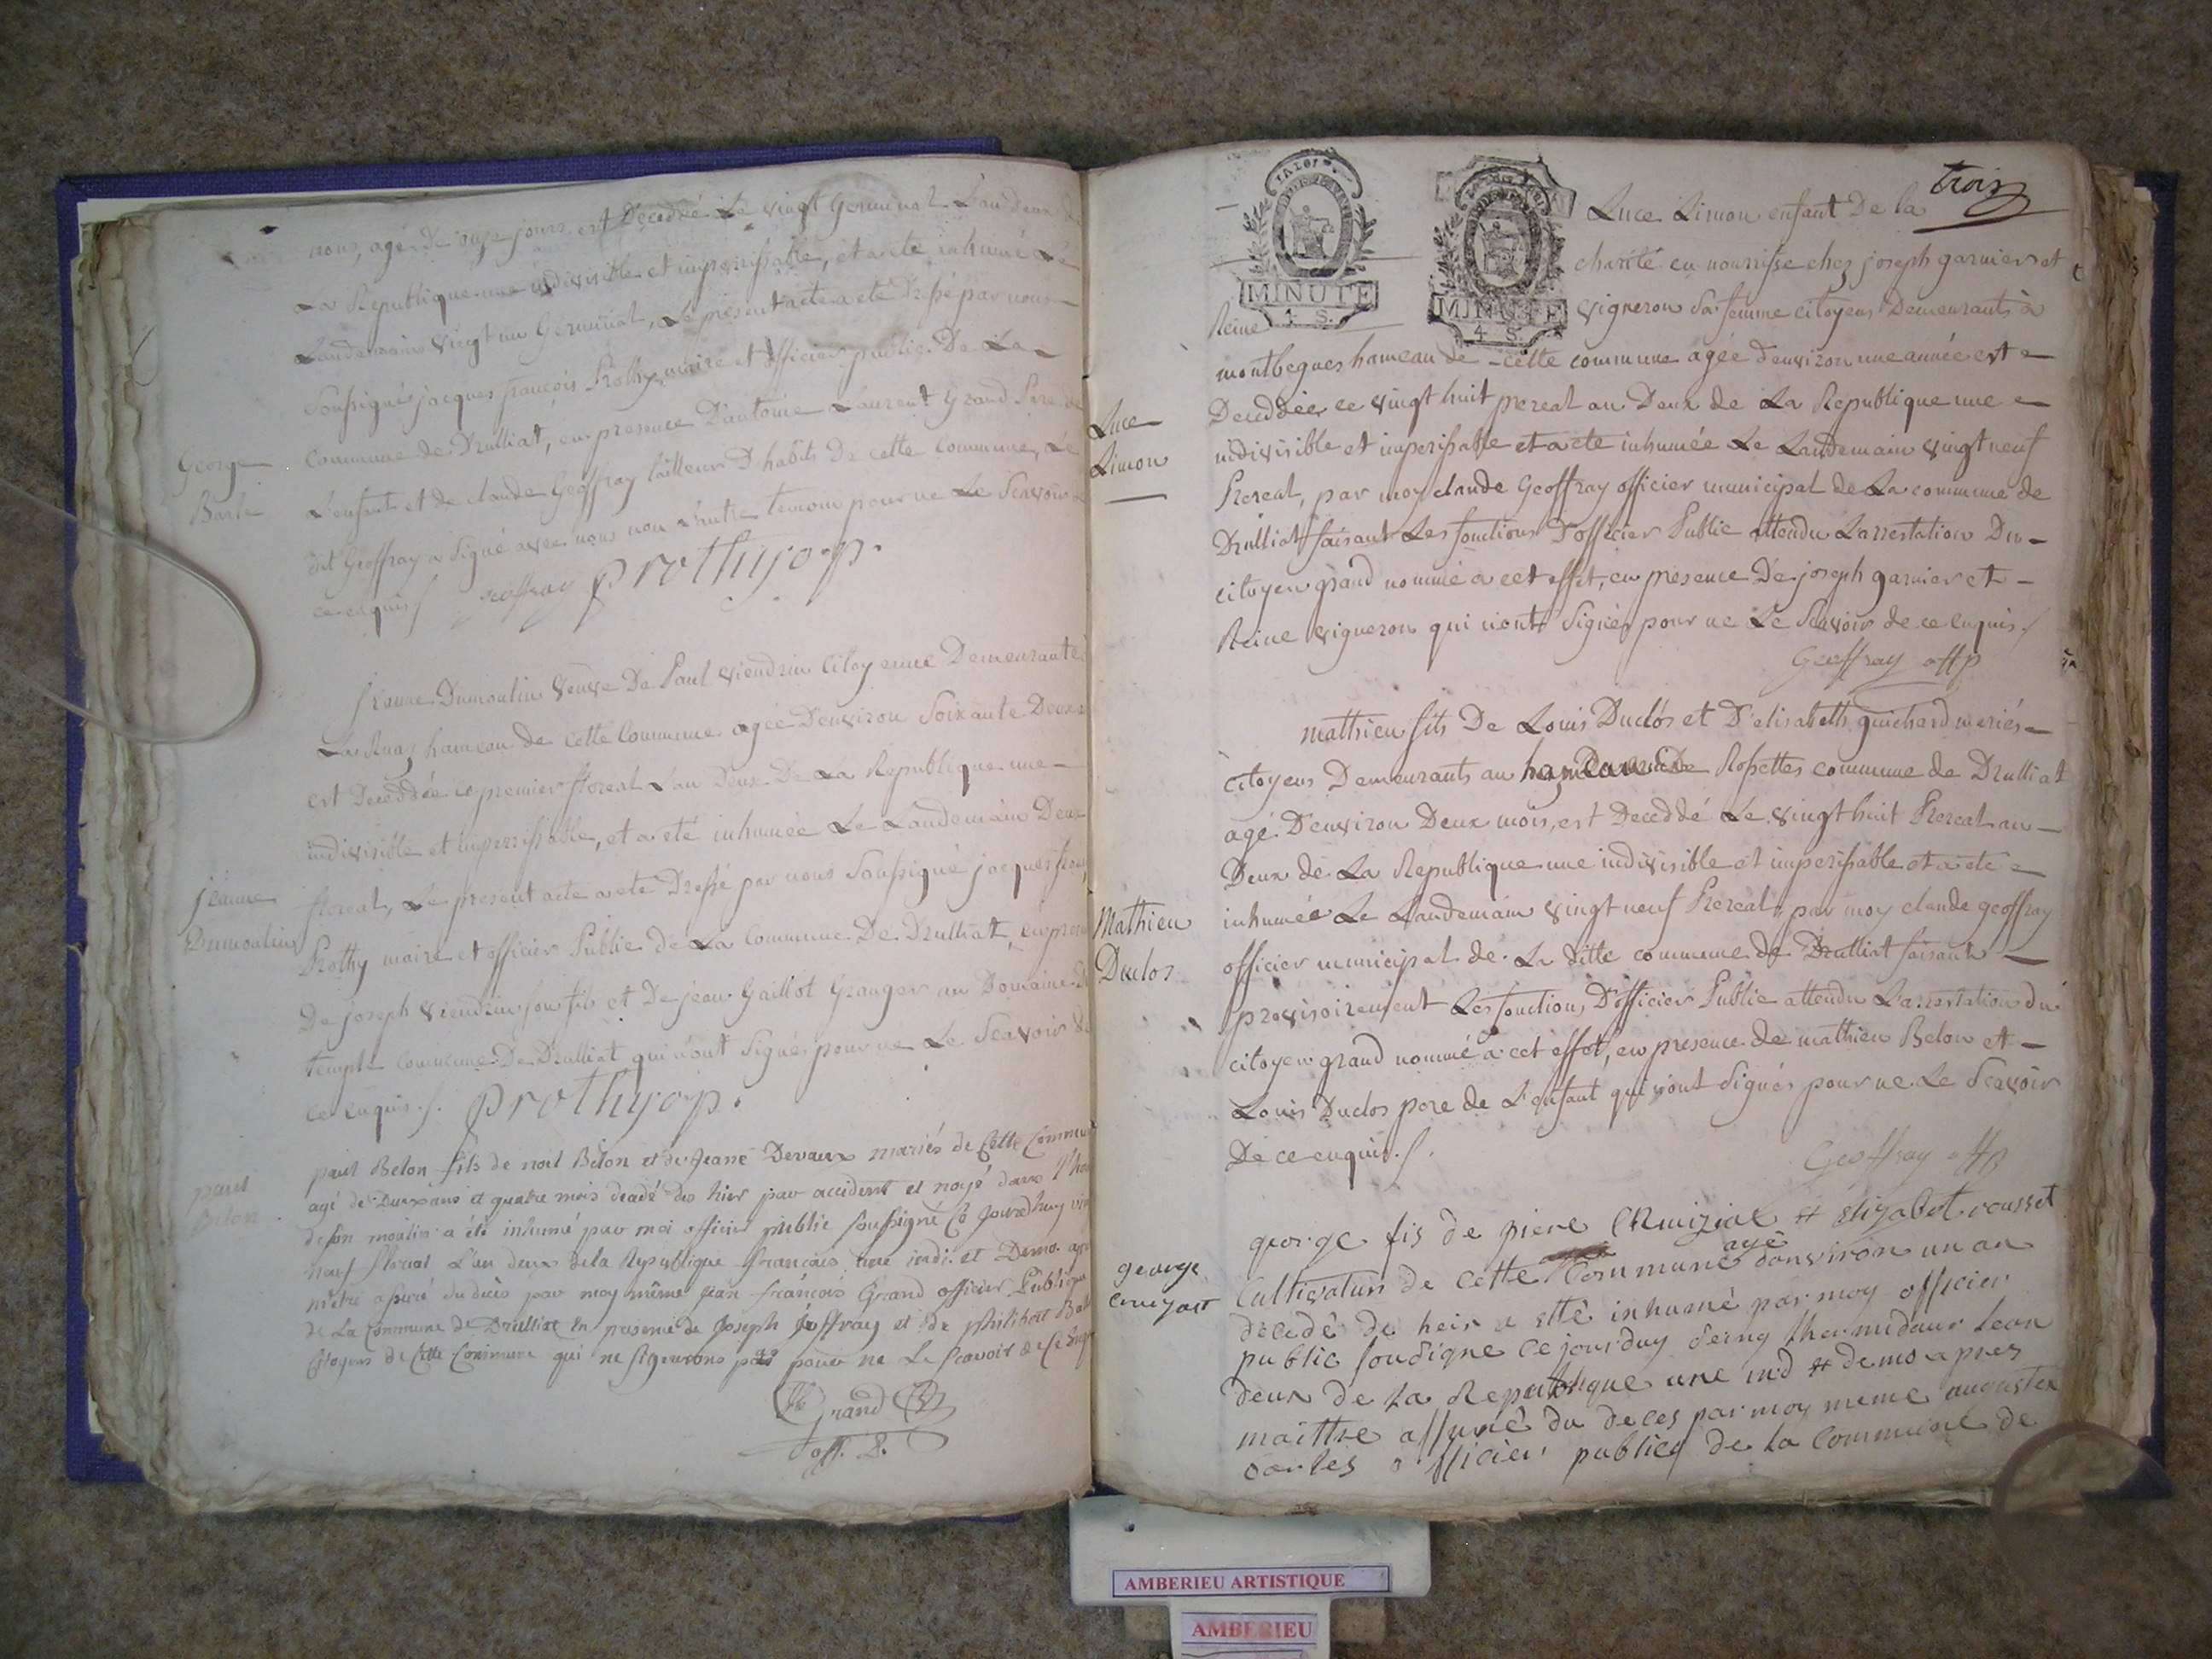 nous, agé de onze jours est Deceddé Le vingt Germinal L'an deux de
La Republique une indivisible et imperissable, et a eté inhumé Le
Landemain vingt un Germinal, Le present acte a eté Dressé par nous
Soussigné jacques françois Prothy maire et officier public De La
George
Barle
Commune de Drulliat, en presence D'antoine Laurent Grand Pere de
L'enfant et de claude Geoffray tailleur D'habits De cette Commune, Le
dit Geoffray a Signé avec nous non L'autre temoin pour ne Le Scavoir de
ce enquis /. geoffray prothy o. p.
Jeanne Dumoulin veuve De Paul viendrin Citoyenne Demeurante
La Ruaz hameau de cette Commune agée D'environ Soixante Deux
est Deceddée ce premier floreal L'an Deux De La Republique une
indivisible et imperissable, et a eté inhumée Le Landemain Deux
jeanne
Dumoulin
floreal, Le present acte a eté Dressé par nous Soussigné jacques fran
Prothy maire et officier Public de La Commune De Drulliat, en pres
De joseph viendrin son fils et De jean Gaillot Granger au Domaine d
temple Commune De Drulliat qui n'ont Signés pour ne Le Scavoir de
ce enquis /. prothy o. p.
paul
Belon
paul Belon fils de noel Belon et de Jeane Devaux mariés de Cette Commu
agé de Deux ans et quatre mois decedé du hier par accident et noyé dans l'
de son moulin a été inhumé par moi officier public soussigné Ce Jourdhuy vin
neuf floreal L'an deux de la Republique francaise une indi. et Demo. apr
m'etre assuré du decés par moy même jean françois Grand officier Publique
de La Commune de Drulliat en presence de Joseph Joffray et de philibert
Citoyens de Cette Commune qui ne signerons pas pour ne Le Scavoir de Ce enq
Grand
off. P.
trois
LA LOI
MINUTE
4 S.
MINUTE
4 S.
Luce Limon enfant De la
charité en nourrisse chez joseph garnier et
Reine
vigneron sa femme citoyens Demeurants à
montbegues hameau de cette commune agée d'environ une année est
Luce
Limon
Deceddée ce vingt huit prereal an Deux de La Republique une
indivisible et imperissable et a eté inhumée Le Landemain vingt neuf
Prereal, par moy claude Geoffray officier municipal de La commune de
Drulliat faisant Les fonctions D'officier Public attendu L'arrestation Du
citoyen grand nommé a cet effet, en presence De joseph garnier et
Reine vigneron qui n'ont Signés pour ne Le Scavoir de ce enquis /.
Geoffray off p
mathieu fils De Louis Duclos et D'elisabeth guichard meriés
citoyens Demeurants au hameau De Rossettes commune de Drulliat
agé D'environ Deux mois, est Deceddé Le vingt huit Prereal an
Deux de La Republique une indivisible et imperissable et a eté
Mathieu
Duclos
inhumée Le Landemain vingt neuf Prereal, par moy claude geoffray
officier municipal de La ditte commune de Drulliat faisant
provisoirement Les fonctions D'officier Public attendu L'arrestation du
citoyen grand nommé a cet effet, en presence de mathieu Belon et
Louis Duclos pere de L'enfant qui n'ont Signés pour ne Le Scavoir
De ce enquis /.
Geoffray off p
george fis de piere Cruiziat et élizabet rousset
george
cruiziat
Cultivaturs de cette Commune agé danviron un an
décedé de heir a etté inhumé par moy officier
public soudigne ce jourduy s'einq thermidaur lean
deux de la Republique une ind et demo apres
maittre assuré du deces par moy meme augustin
officier publicq de la Commune de
AMBERIEU ARTISTIQUE
AMBERIEU